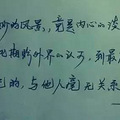 妙的风景，竟是内心的淡
期盼外界的认可，到最
己的，与他人毫无关系